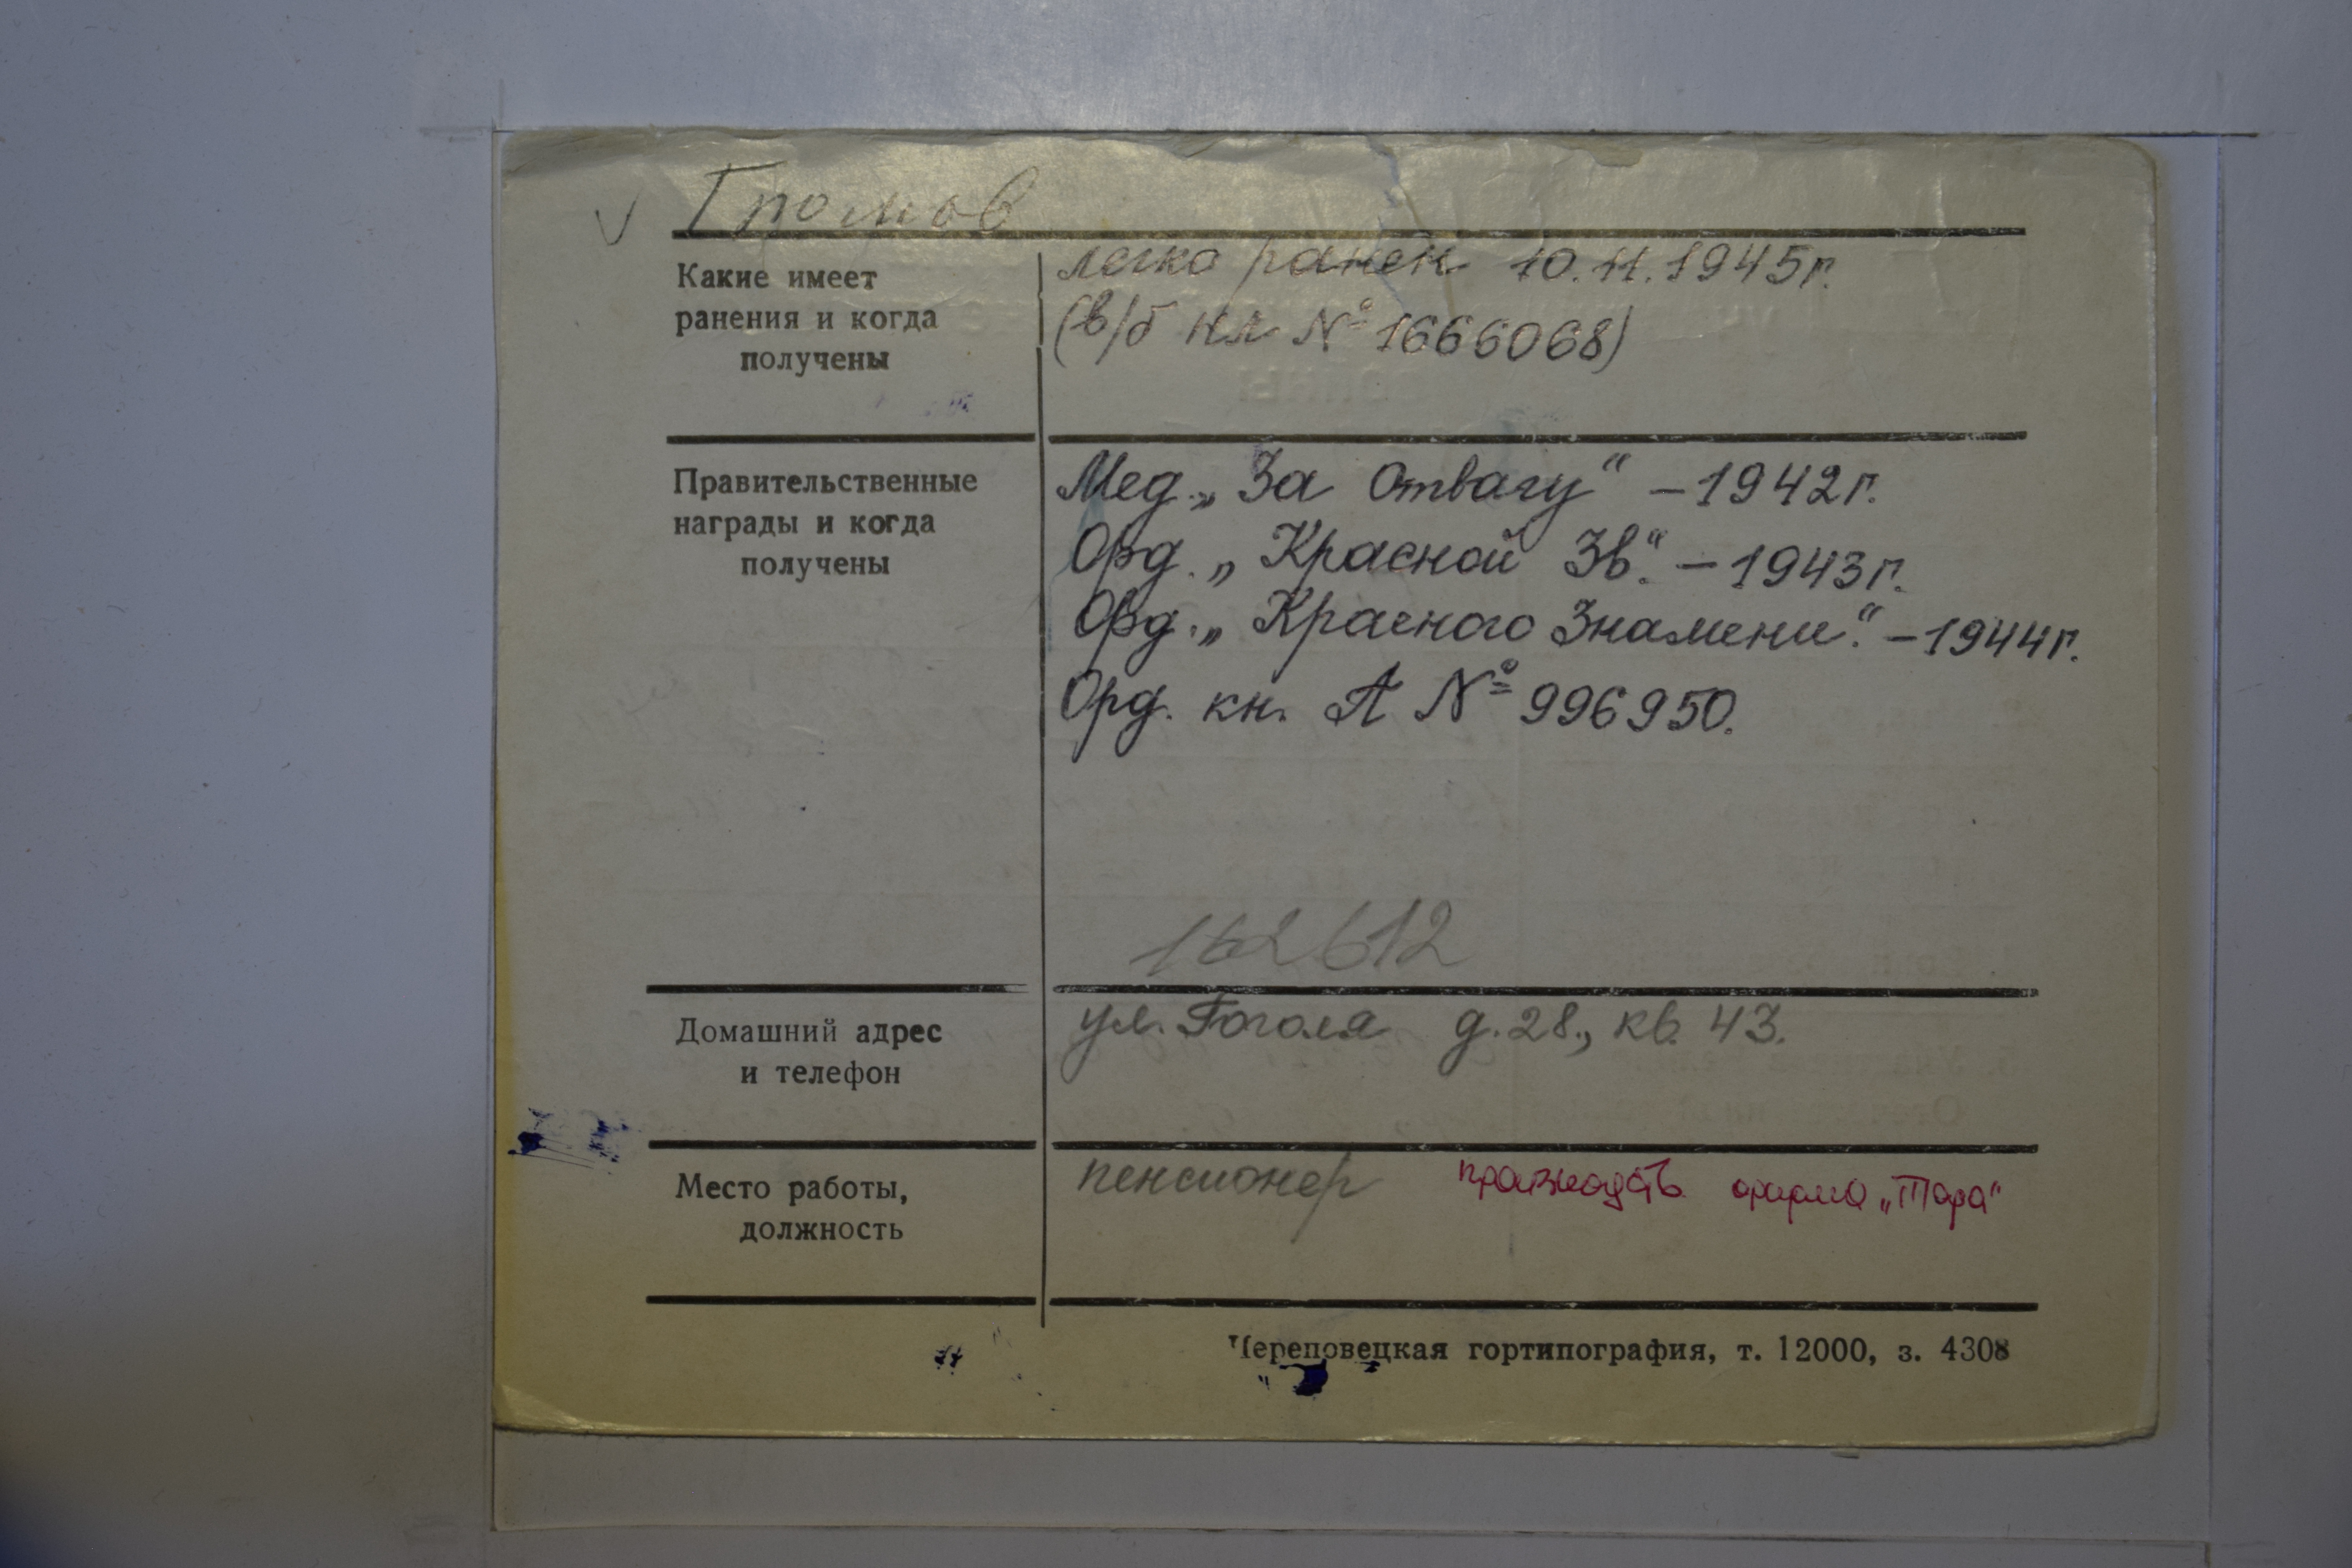 Громов
Какие имеет
ранения и когда
получены
легко ранен 10.11.1945г.
(в/б нл № 1666068)
Правительственные
награды и когда
получены
Мед. „За Отвагу“ – 1942г.
Орд. „Красной Зв.“ – 1943г.
Орд. „Красного Знамени“. – 1944г.
Орд. кн. А № 996950.
162612
Домашний адрес
и телефон
ул. Гоголя д. 28., кв. 43.
Место работы,
должность
пенсионер фирма „Тара“
Череповецкая гортипография, т. 12000, з. 4308